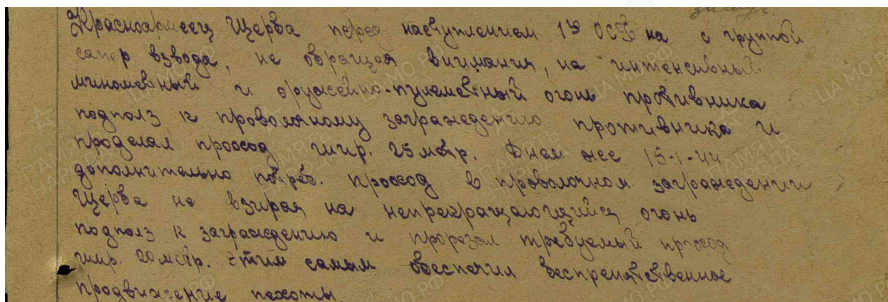 Красноармеец Щерба перед наступлением 1го ОСБ на с группой
сапер взвода, не обращая внимания, на интенсивный
минометный и оружейно-пулеметный огонь противника
подполз к проволочному заграждению противника и
проделал проход шир. 25 метр. Днем же 15-1-44
дополнительно потреб. проход в проволочном заграждении
Щерба не взирая на непрекращающийся огонь
подполз к заграждению и прорезал требуемый проход
шир. 20 метр. Этим самым обеспечил беспрепятственное
продвижение пехоты.